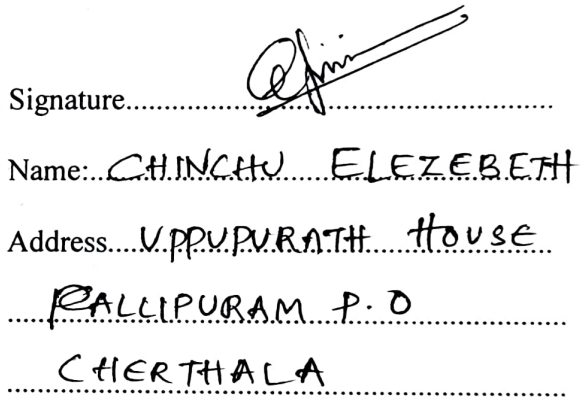 Signature..........................................................
Name:..CHINCHU ELEZEBETH
Address....UPPUPURATH HOUSE
PALLIPURAM P.O
CHERTHALA